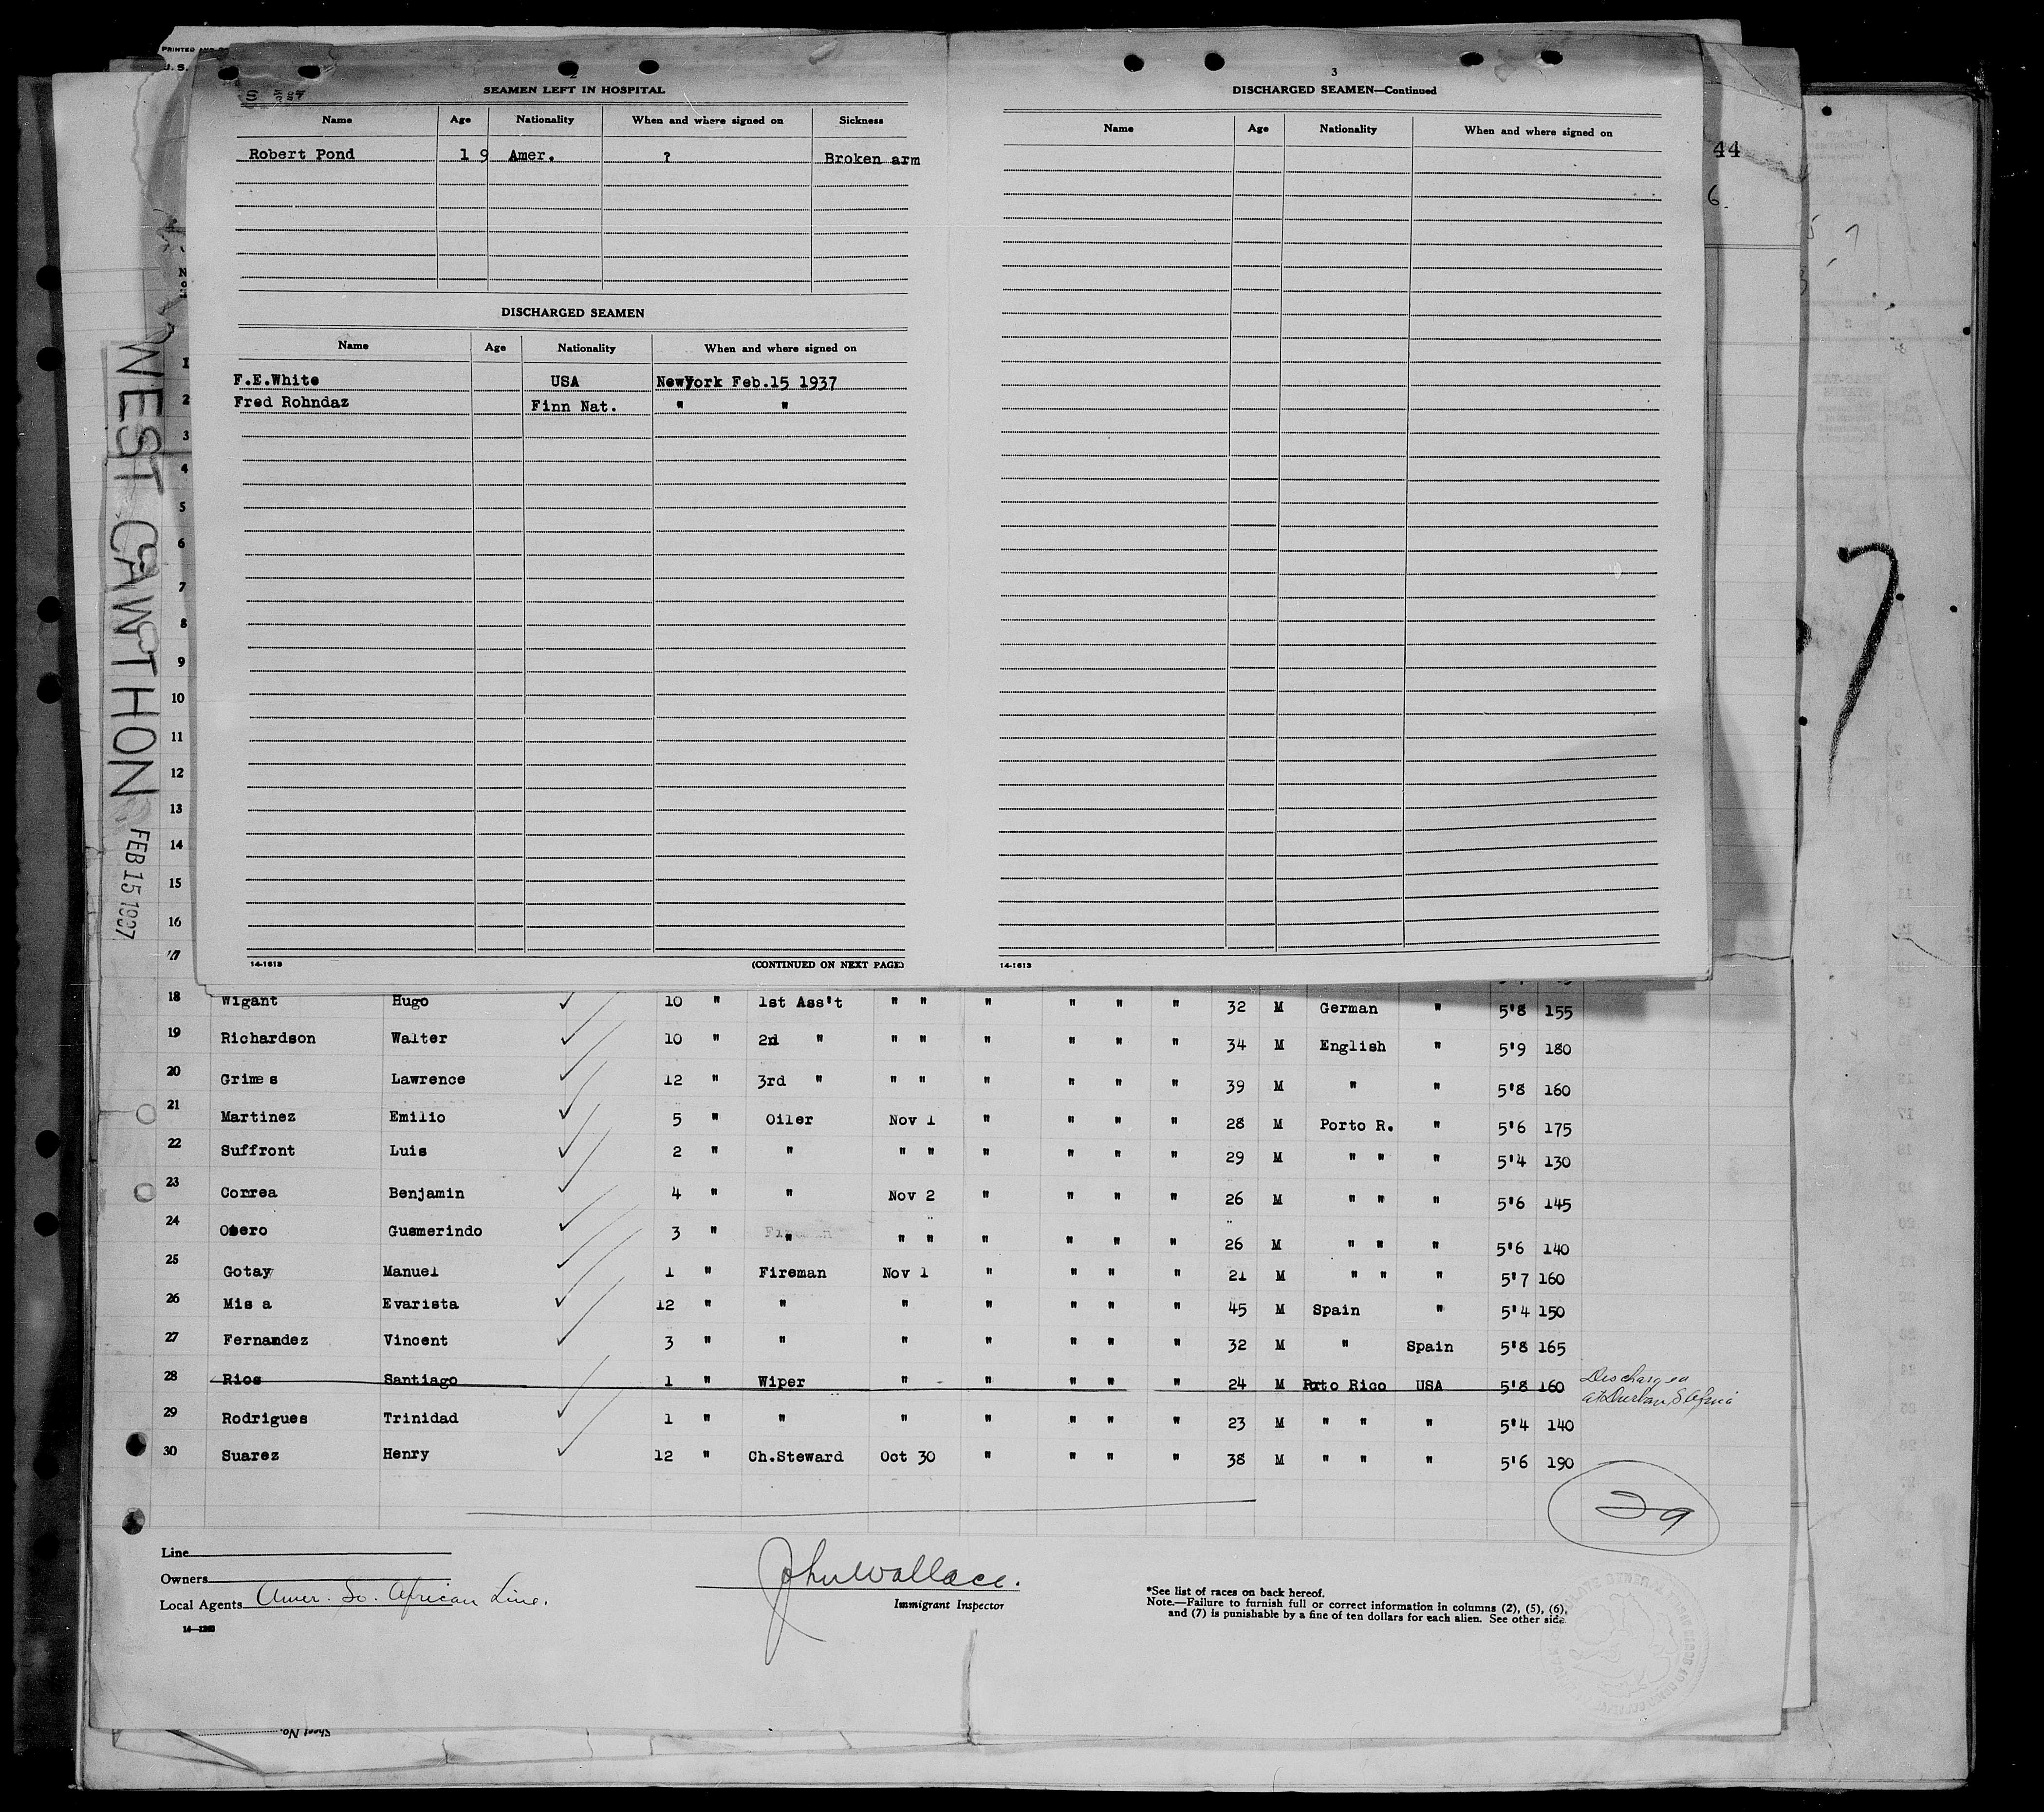 PRINTED
U. S.
WEST CAWTHON
FEB 15 1937
2
SEAMEN LEFT IN HOSPITAL
Name Age Nationality When and where signed on Sickness
Robert Pond 19 Amer. ? Broken arm
DISCHARGED SEAMEN
Name Age Nationality When and where signed on
F.E.White USA NewYork Feb.15 1937
Fred Rohndaz Finn Nat. " "
14-1613 (CONTINUED ON NEXT PAGE)
3
DISCHARGED SEAMEN—Continued
Name Age Nationality When and where signed on
14-1613
44
6.
7
1
2
3
4
5
6
7
8
9
10
11
12
13
14
15
16
17
18 Wigant Hugo ✓ 10 " 1st Ass't " " " " " " 32 M German " 5'8 155
19 Richardson Walter ✓ 10 " 2nd " " " " " " " 34 M English " 5'9 180
20 Grimes Lawrence ✓ 12 " 3rd " " " " " " " 39 M " " 5'8 160
21 Martinez Emilio ✓ 5 " Oiler Nov 1 " " " " 28 M Porto R. " 5'6 175
22 Suffront Luis ✓ 2 " " " " " " " " 29 M " " " 5'4 130
23 Correa Benjamin ✓ 4 " " Nov 2 " " " " 26 M " " " 5'6 145
24 Otero Gusmerindo ✓ 3 " " " " " " " " 26 M " " " 5'6 140
25 Gotay Manuel ✓ 1 " Fireman Nov 1 " " " " 21 M " " " 5'7 160
26 Misa Evarista ✓ 12 " " " " " " " 45 M Spain " 5'4 150
27 Fernandez Vincent ✓ 3 " " " " " " " 32 M " Spain 5'8 165
28 Rios Santiago 1 " Wiper " " " " " 24 M Porto Rico USA 5'8 160 Discharged
at Durban, S Africa
29 Rodrigues Trinidad ✓ 1 " " " " " " " 23 M " " " 5'4 140
30 Suarez Henry ✓ 12 " Ch.Steward Oct 30 " " " " 38 M " " " 5'6 190
29
Line
Owners
Local Agents Amer. So. African Line.
14—1240
John Wallace.
Immigrant Inspector
*See list of races on back hereof.
Note.—Failure to furnish full or correct information in columns (2), (5), (6),
and (7) is punishable by a fine of ten dollars for each alien. See other side.
Sheet No.